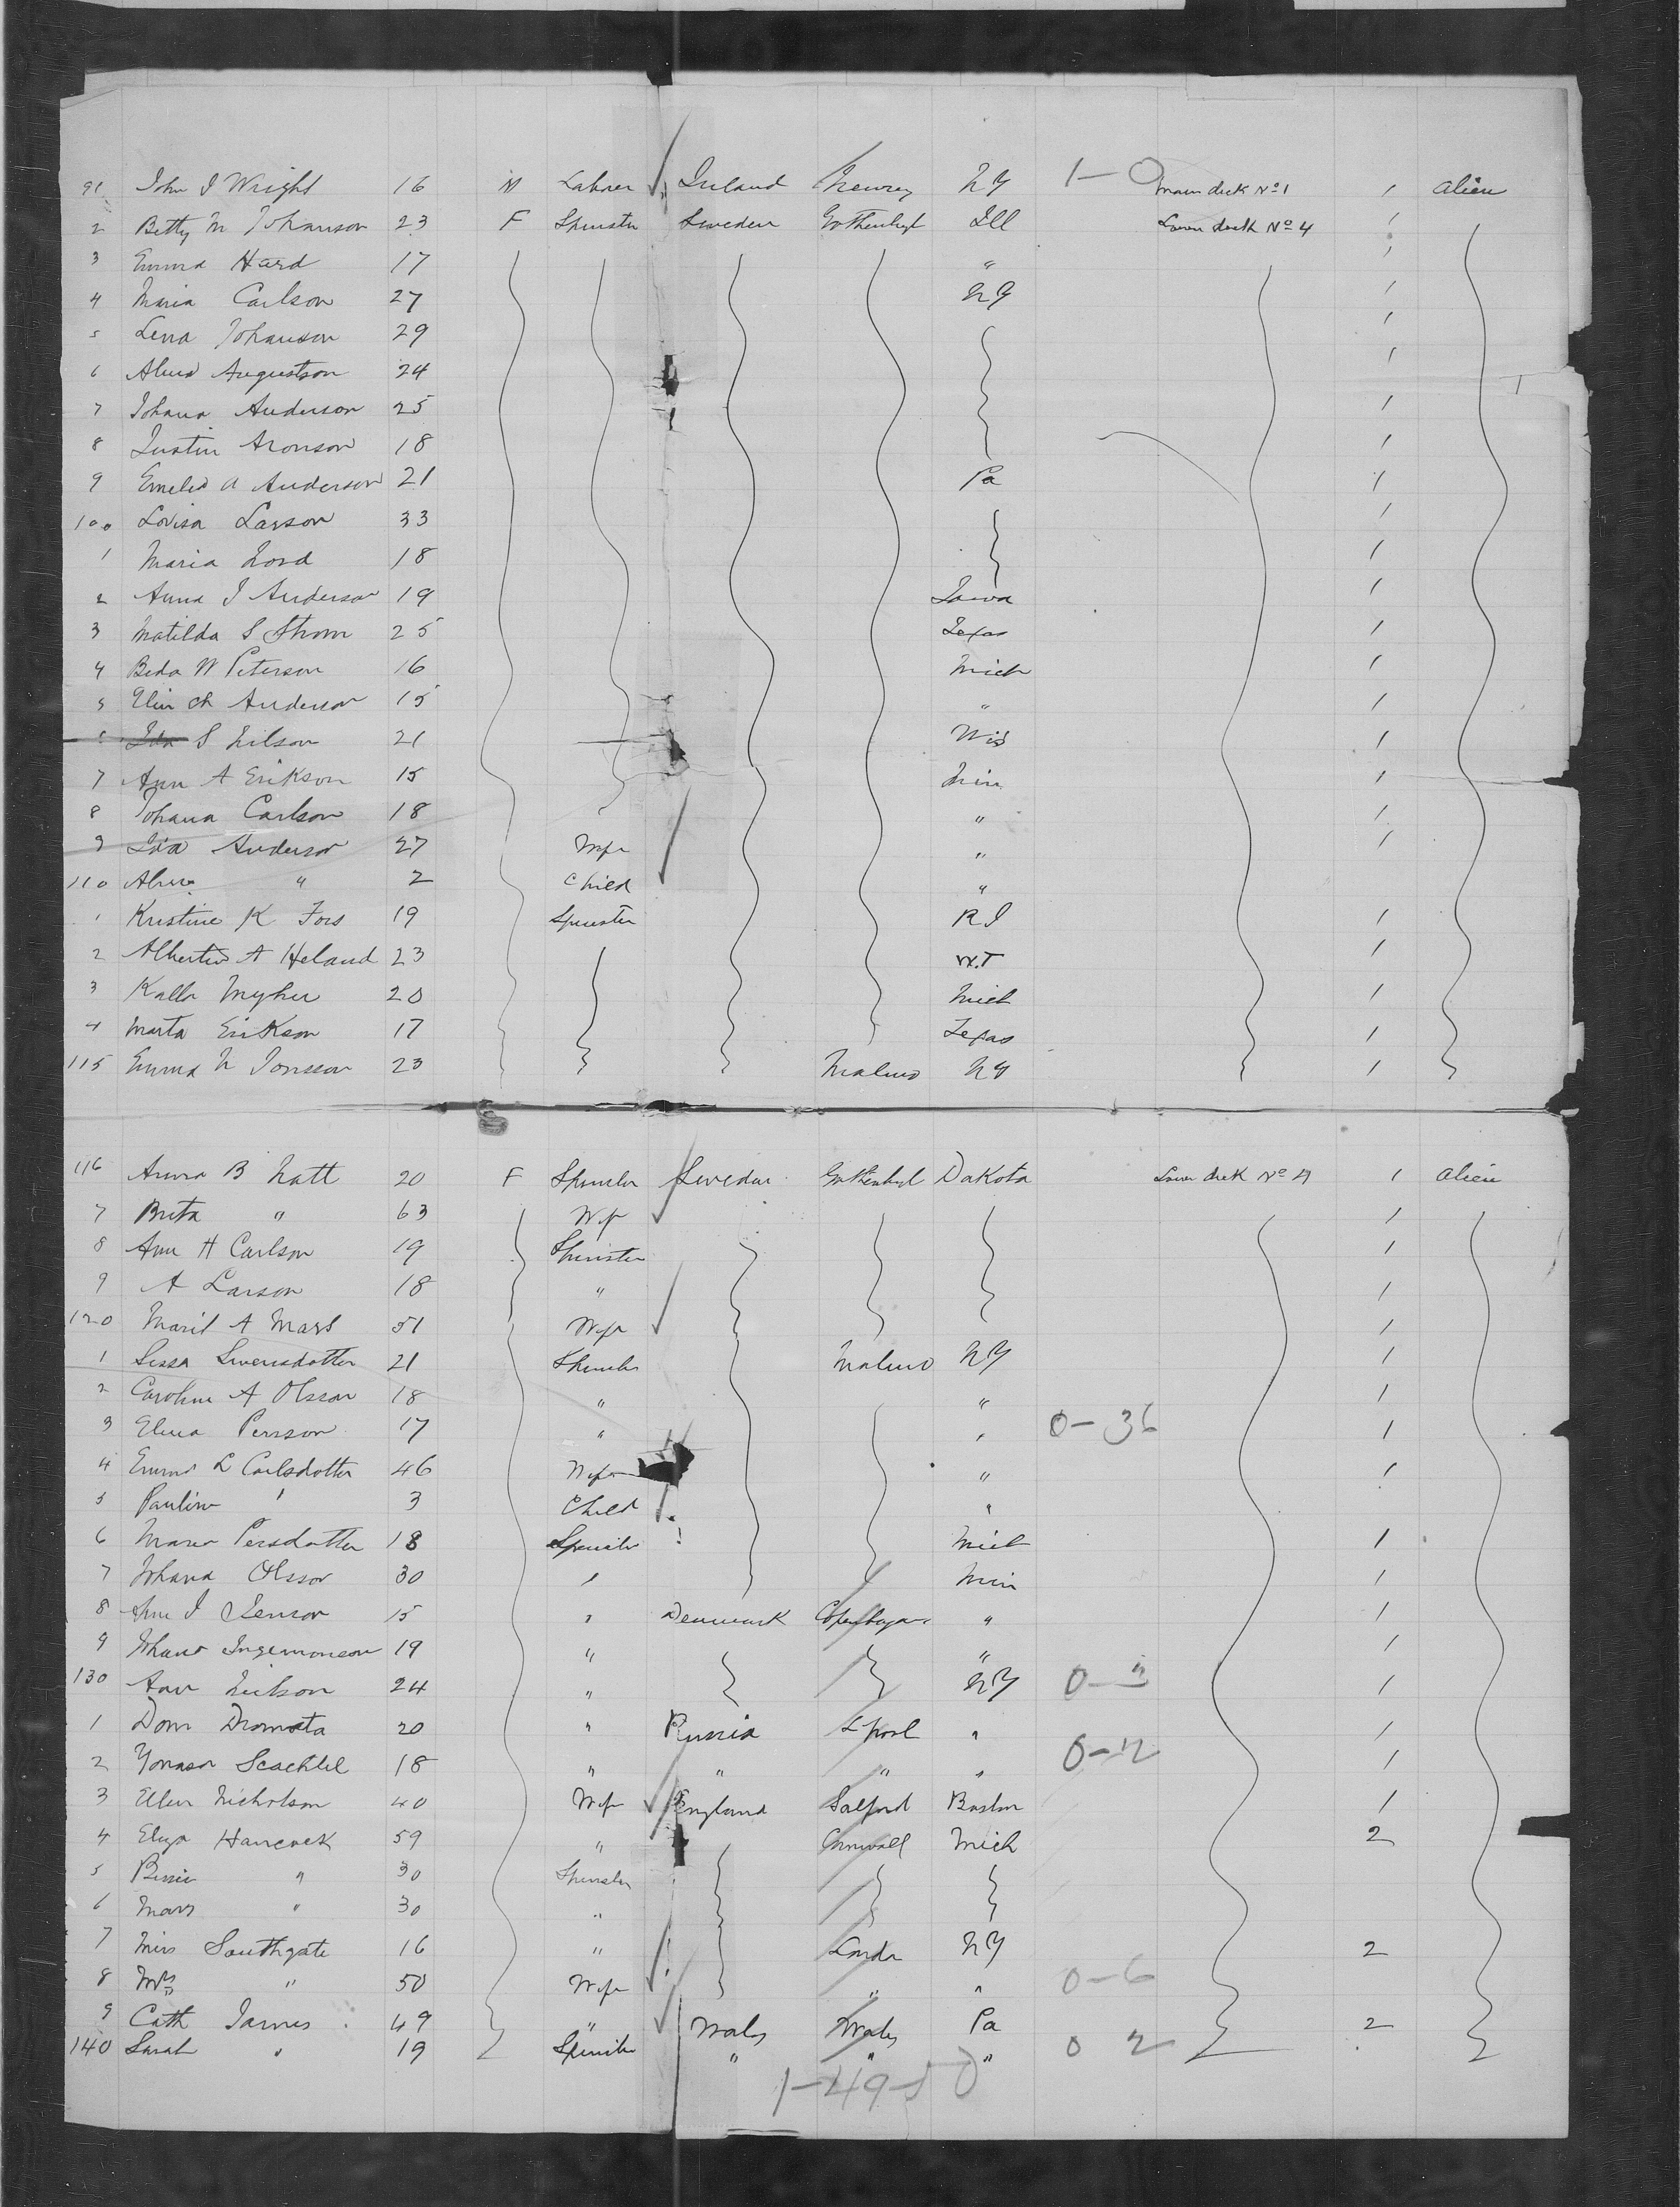 91 John I Wright 16 M Labrer Ireland Newry NY 1-0 Main deck No 1 1 alien
2 Betty M Johanson 23 F Spinster Sweden Gothenbg Ill Lower deck No 4 1
3 Emma Hard 17 " 1
4 Maria Carlson 27 NY 1
5 Lena Johanson 29 1
6 Alma Augustson 24 1
7 Johana Anderson 25 1
8 Justin Aronson 18 1
9 Emelia A Anderson 21 Pa 1
100 Lovisa Larson 33 1
1 Maria Lord 18 1
2 Anna I Anderson 19 Iowa 1
3 Matilda S Strom 25 Texas 1
4 Beda W Peterson 16 Mich 1
5 Elin Ch Anderson 15 " 1
6 Ida S Nilson 21 Wis 1
7 Ann A Erikson 15 Min 1
8 Johana Carlson 18 " 1
9 Ida Anderson 27 Wife " 1
110 Alma " 2 Child "
1 Kristine K Fors 19 Spinster R I 1
2 Albertina A Heland 23 W.T 1
3 Kalla 20 Mich 1
4 Marta Erikson 17 Texas 1
115 Emma N Jonsson 23 Malmo NY 1
116 Anna B Natt 20 F Spinster Sweden Gothenbg Dakota Lower deck No 4 1 alien
7 Brita " 63 Wife 1
8 Ann H Carlson 19 Spinster 1
9 A Larson 18 " 1
120 Marit A Mars 51 Wife 1
1 Sissa Swensdotter 21 Spinster Malmo NY 1
2 Caroline A Olsson 18 " " 1
3 Elina Persson 17 " " 0-36 1
4 Emma L Carlsdotter 46 Wife " 1
5 Pauline " 3 Child "
6 Maria Persdotter 18 Spinster Mich 1
7 Johana Olsson 30 " Min 1
8 Ann I Jenson 15 " Denmark Copenhagen " 1
9 Johana Ingemonson 19 " " 1
130 Ann 24 " NY 0-3 1
1 Dom Dromata 20 " Russia Lpool " 1
2 Scachtel 18 " " " " 0-12 1
3 Ellen Nicholson 40 Wife England Salford Boston 1
4 Eliza Hancock 59 " Cornwall Mich 2
5 Bessie " 30 Spinster
6 Mary " 30 "
7 Miss Southgate 16 " London NY 2
8 Mrs " 50 Wife " " 0-6
9 Cath James 49 " Wales Wales Pa 2
140 Sarah " 19 Spinster " " " 0 2
1-49-50